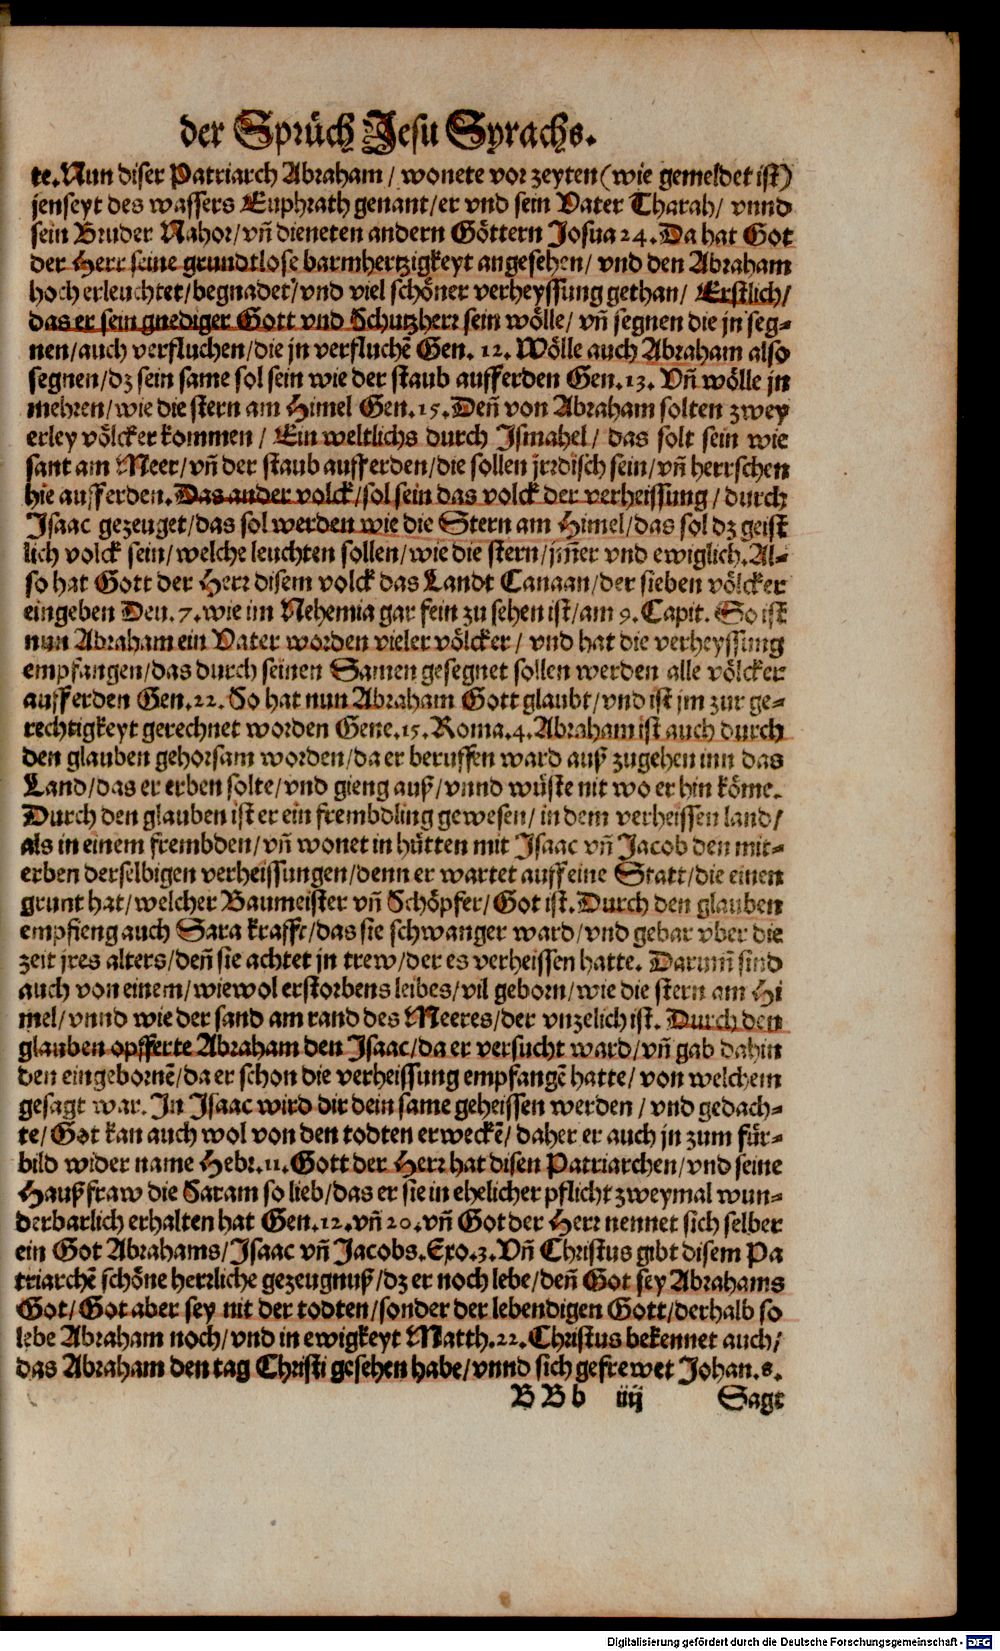 der Sprüch Jesu Syrachs.
te. Nun diser Patriarch Abraham / wonete vor zeyten (wie gemeldet ist)
jenseyt des wassers Euphrath genant / er vnd sein Vater Tharah / vnnd
sein Bruder Nahor / vñ dieneten andern Göttern Josua 24. Da hat Got
der Herr seine grundtlose barmhertzigkeyt angesehen / vnd den Abraham
hoch erleuchtet / begnadet / vnd viel schöner verheyssung gethan / Erstlich /
das er sein gnediger Gott vnd Schutzherr sein wölle / vñ segnen die jn seg-
nen / auch verfluchen / die jn verfluchẽ Gen. 12. Wölle auch Abraham also
segnen / dz sein same sol sein wie der staub aufferden Gen. 13. Vñ wölle jn
mehren / wie die stern am Himel Gen. 15. Deñ von Abraham solten zwey
erley völcker kommen / Ein weltlichs durch Ismahel / das solt sein wie
sant am Meer / vñ der staub aufferden / die sollen jrrdisch sein / vñ herrschen
hie aufferden. Das ander volck / sol sein das volck der verheissung / durch
Isaac gezeuget / das sol werden wie die Stern am Himel / das sol dz geist
lich volck sein / welche leuchten sollen / wie die stern / jm̃er vnd ewiglich. Al-
so hat Gott der Herr disem volck das Landt Canaan / der sieben völcker
eingeben Deu. 7. wie im Nehemia gar fein zu sehen ist / am 9. Capit. So ist
nun Abraham ein Vater worden vieler völcker / vnd hat die verheyssung
empfangen / das durch seinen Samen gesegnet sollen werden alle völcker
aufferden Gen. 22. So hat nun Abraham Gott glaubt / vnd ist jm zur ge-
rechtigkeyt gerechnet worden Gene. 15. Roma. 4. Abraham ist auch durch
den glauben gehorsam worden / da er beruffen ward auß zugehen inn das
Land / das er erben solte / vnd gieng auß / vnnd wüste nit wo er hin köme.
Durch den glauben ist er ein frembdling gewesen / in dem verheissen land /
als in einem frembden / vñ wonet in hütten mit Isaac vñ Jacob den mit-
erben derselbigen verheissungen / denn er wartet auff eine Statt / die einen
grunt hat / welcher Baumeister vñ Schöpfer / Got ist. Durch den glauben
empfieng auch Sara krafft / das sie schwanger ward / vnd gebar vber die
zeit jres alters / deñ sie achtet jn trew / der es verheissen hatte. Darum̃ sind
auch von einem / wiewol erstorbens leibes / vil geborn / wie die stern am Hi
mel / vnnd wie der sand am rand des Meeres / der vnzelich ist. Durch den
glauben opfferte Abraham den Isaac / da er versucht ward / vñ gab dahin
den eingebornẽ / da er schon die verheissung empfangẽ hatte / von welchem
gesagt war. In Isaac wird dir dein same geheissen werden / vnd gedach-
te / Got kan auch wol von den todten erweckẽ / daher er auch jn zum für-
bild wider name Hebr. 11. Gott der Herr hat disen Patriarchen / vnd seine
Haußfraw die Saram so lieb / das er sie in ehelicher pflicht zweymal wun-
derbarlich erhalten hat Gen. 12. vñ 20. vñ Got der Herr nennet sich selber
ein Got Abrahams / Isaac vñ Jacobs. Exo. 3. Vñ Christus gibt disem Pa
triarchẽ schöne herrliche gezeugnuß / dz er noch lebe / deñ Got sey Abrahams
Got / Got aber sey nit der todten / sonder der lebendigen Gott / derhalb so
lebe Abraham noch / vnd in ewigkeyt Matth. 22. Christus bekennet auch /
das Abraham den tag Christi gesehen habe / vnnd sich gefrewet Johan. 8.
B B b iiij Sagt
Digitalisierung gefördert durch die Deutsche Forschungsgemeinschaft - DFG